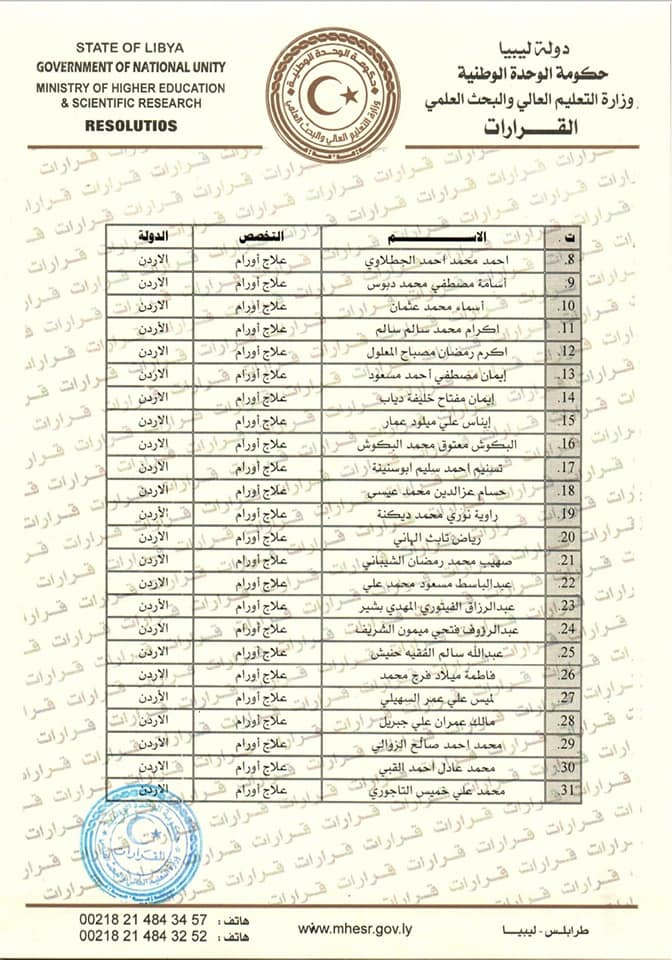 STATE OF LIBYA
GOVERNMENT OF NATIONAL UNITY
MINISTRY OF HIGHER EDUCATION
& SCIENTIFIC RESEARCH
RESOLUTIOS
دولة ليبيا
حكومة الوحدة الوطنية
وزارة التعليم العالي والبحث العلمي
القـــرارات
حكومة الوحدة الوطنية
وزارة التعليم العالي والبحث العلمي
ت . الاســـــــــم التخصص الدولة
8. احمد محمد احمد الجطلاوي علاج أورام الاردن
9. أسامة مصطفي محمد دبوس علاج أورام الاردن
10. أسماء محمد عثمان علاج أورام الاردن
11. اكرام محمد سالم سالم علاج أورام الأردن
12. اكرم رمضان مصباح المعلول علاج أورام الاردن
13. إيمان مصطفي أحمد مسعود علاج أورام الاردن
14. إيمان مفتاح خليفة دياب علاج أورام الاردن
15. إيناس علي ميلود عمار علاج أورام الاردن
16. البكوش معتوق محمد البكوش علاج أورام الاردن
17. تسنيم احمد سليم ابوسنينة علاج أورام الاردن
18. حسام عزالدين محمد عيسى علاج أورام الاردن
19. راوية نوري محمد ديكنة علاج أورام الأردن
20. رياض ثابث الهاني علاج أورام الاردن
21. صهيب محمد رمضان الشيباني علاج أورام الاردن
22. عبدالباسط مسعود محمد علي علاج أورام الاردن
23. عبدالرزاق الفيتوري المهدي بشير علاج أورام الأردن
24. عبدالرؤوف فتحي ميمون الشريف علاج أورام الاردن
25. عبدالله سالم الفقيه حنيش علاج أورام الاردن
26. فاطمة ميلاد فرج محمد علاج أورام الاردن
27. لميس علي عمر السهيلي علاج أورام الأردن
28. مالك عمران علي جبريل علاج أورام الاردن
29. محمد احمد صالح الزوالي علاج أورام الاردن
30. محمد عادل احمد القبي علاج أورام الاردن
31. محمد علي خميس التاجوري علاج أورام الأردن
القرارات
طرابلس - ليبيـا
www.mhesr.gov.ly
هاتف : 00218 21 484 34 57
هاتف : 00218 21 484 32 52